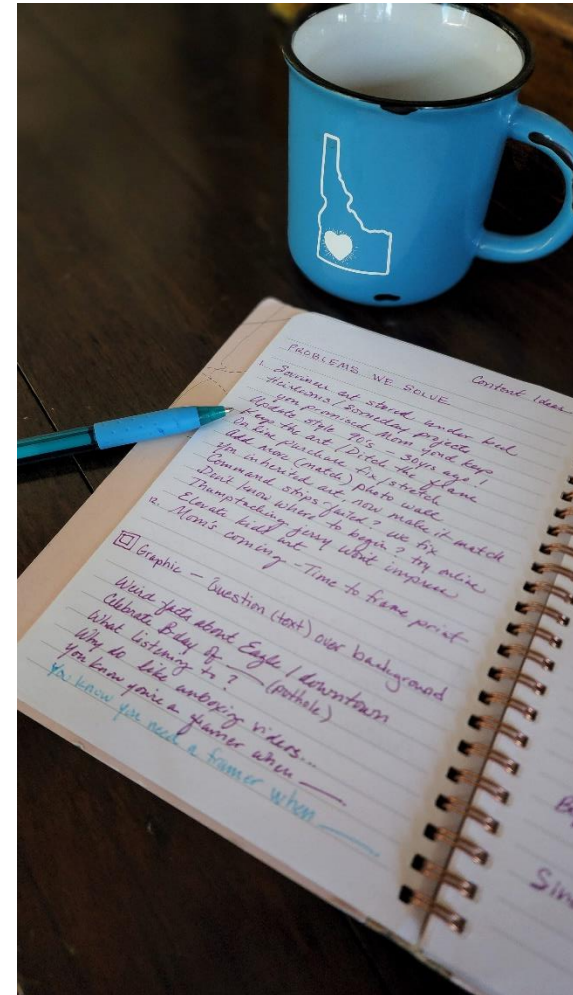 PROBLEMS WE SOLVE
Content Ideas
1. Souvenir art stored under bed
Heirlooms / Someday projects
you promised Mom you'd keep
Update style 90's - 30 yrs ago!
Keep the art / Ditch the frame
On line purchase fix / stretch
Add more (match) photo wall
You inherited art now make it match
Command strips failed? We fix
Don't know where to begin? try online
Thumptacking jersy won't impress
Elevate kid art
12. Mom's coming - Time to frame print
Graphic - Question (text) over background
Weird facts about Eagle / downtown
Celebrate B day of ___ (pothole)
What listening to?
Why do like unboxing videos...
You know you're a framer when ___
You know you need a framer when ___.